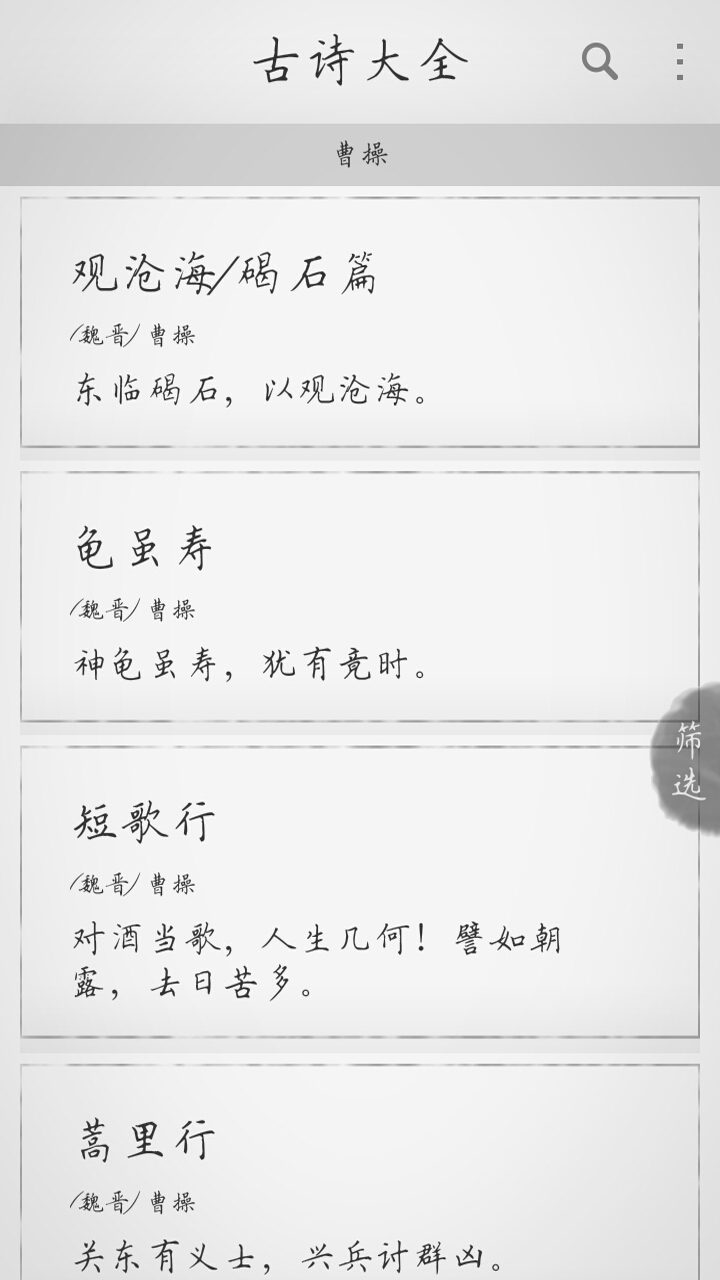 古诗大全
曹操
观沧海/碣石篇
/魏晋/ 曹操
东临碣石，以观沧海。
龟虽寿
/魏晋/ 曹操
神龟虽寿，犹有竟时。
筛选
短歌行
/魏晋/ 曹操
对酒当歌，人生几何！譬如朝
露，去日苦多。
蒿里行
/魏晋/ 曹操
关东有义士，兴兵讨群凶。